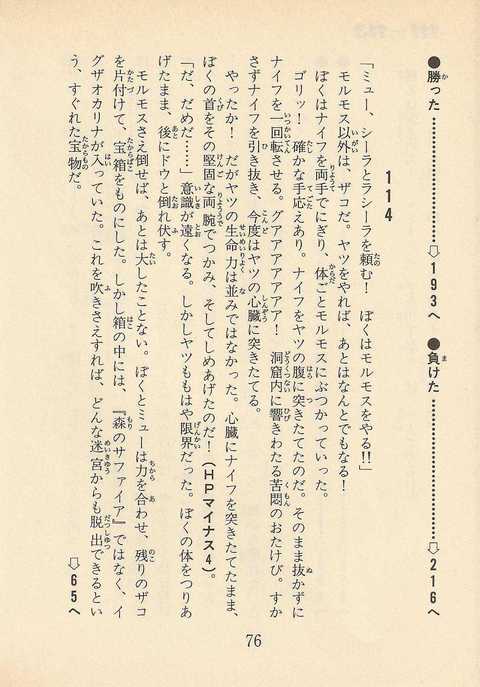 ●勝った…………………⇨193へ ●負けた…………………⇨216へ
114
「ミュー、シーラとラシーラを頼む！ ぼくはモルモスをやる!!」
モルモス以外は、ザコだ。ヤツをやれば、あとはなんとでもなる！
ぼくはナイフを両手でにぎり、体ごとモルモスにぶつかっていった。
ゴリッ！ 確かな手応えあり。ナイフをヤツの腹に突きたてたのだ。そのまま抜かずに
ナイフを一回転させる。グアアアアアアア！ 洞窟内に響きわたる苦悶のおたけび。すか
さずナイフを引き抜き、今度はヤツの心臓に突きたてる。
やったか！ だがヤツの生命力は並みではなかった。心臓にナイフを突きたてたまま、
ぼくの首をその堅固な両腕でつかみ、そしてしめあげたのだ！（HPマイナス4）。
「だ、だめだ……」意識が遠くなる。しかしヤツももはや限界だった。ぼくの体をつりあ
げたまま、後にドウと倒れ伏す。
モルモスさえ倒せば、あとは大したことない。ぼくとミューは力を合わせ、残りのザコ
を片付けて、宝箱をものにした。しかし箱の中には、『森のサファイア』ではなく、イ
グザオカリナが入っていた。これを吹きさえすれば、どんな迷宮からも脱出できるとい
う、すぐれた宝物だ。
⇨65へ
76